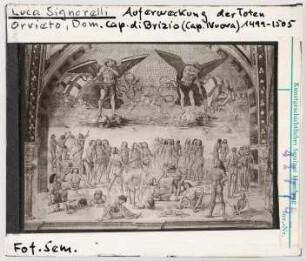 Luca Signorelli Auferweckung der Toten
Orvieto, Dom. Cap. di Brizio (Cap. Nuova) 1499-1505
Kunstgeschichtliches Seminar
Inv.-Nr.
Fot. Sem.